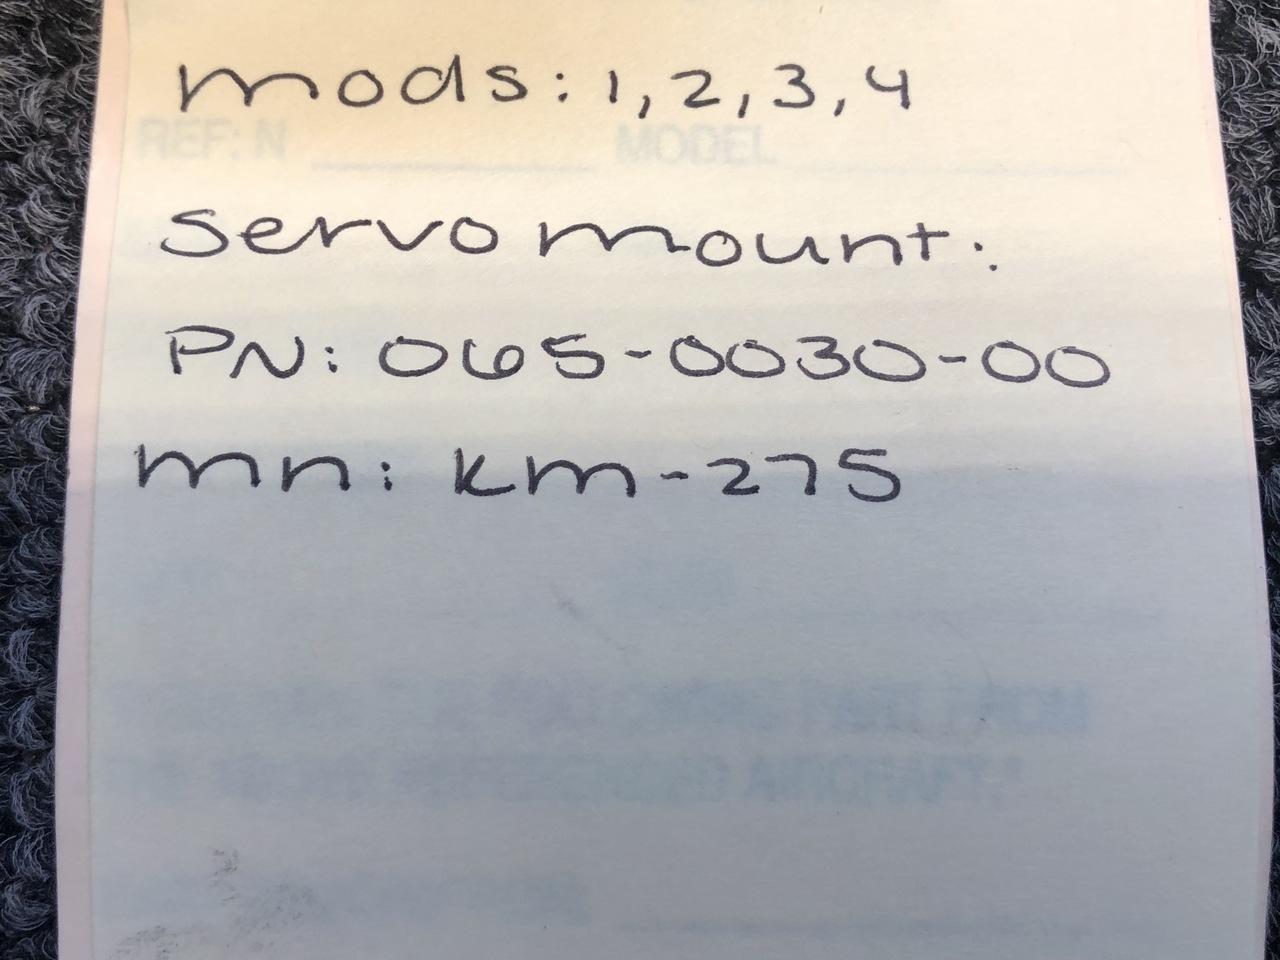 mods: 1, 2, 3, 4
REF: N MODEL
servo mount:
PN: 065-0030-00
mn: km-275
AIRCRAFT